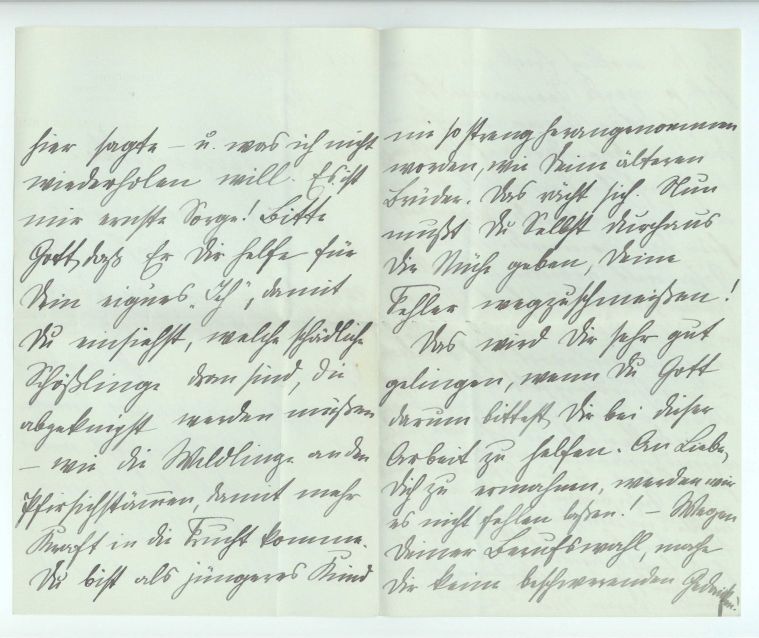 hier sagte – u. was ich nicht
wiederholen will. Es ist
mir ernste Sorge! Bitte
Gott, daß Er Dir helfe für
Dein eigenes „Ich", damit
Du einsiehst, welche schädliche
Schößlinge dran sind, die
abgeknipst werden müssen
– wie die Wildlinge an den
Pfirsichstämen, damit mehr
Kraft in die Frucht komme.
Du bist als jüngeres Kind
nie so streng herangenommen
worden, wie Deine älteren
Brüder. Das rächt sich. Nun
mußt Du Selbst durchaus
Dir Mühe geben, Deine
Fehler wegzuschmeißen!
Das wird Dir sehr gut
gelingen, wenn Du Gott
darum bittest, Dir bei dieser
Arbeit zu helfen. An Liebe,
Dich zu ermahnen, werden wir
es nicht fehlen lassen! – Wegen
Deiner Berufswahl, mache
Dir keine beschwerenden Gedanken!